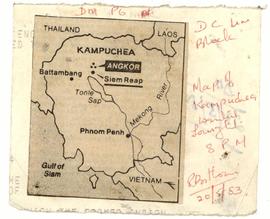 THAILAND
LAOS
KAMPUCHEA
ANGKOR
Battambang
Siem Reap
Tonle
Sap
Mekong
River
Phnom Penh
Gulf of
Siam
VIETNAM
DC Line
Block
Map of
Kampuchea
8 PM